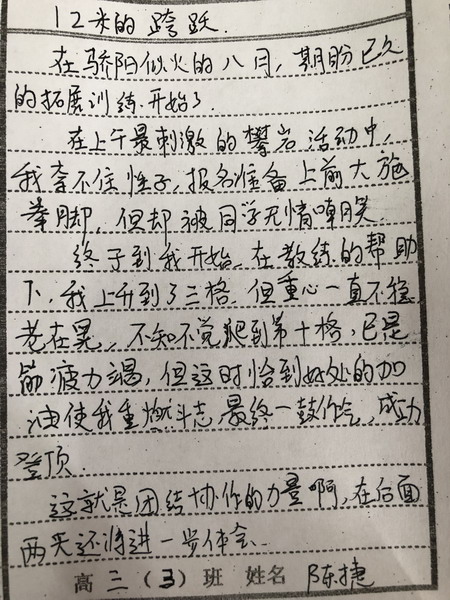 12米的跨跃.
在骄阳似火的八月，期盼已久
的拓展训练开始了
在上午最刺激的攀岩活动中，
我奈不住性子，报名准备上前大施
拳脚，但却被同学无情嘲笑
终于到我开始，在教练的帮助
下，我上升到了三格.但重心一直不稳
老在晃，不知不觉爬到第十格，已是
筋疲力竭，但这时恰到好处的加
油使我重燃斗志，最终一鼓作气，成功
登顶.
这就是团结协作的力量啊，在后面
两天还将进一步体会.
高三（3）班 姓名 陈捷